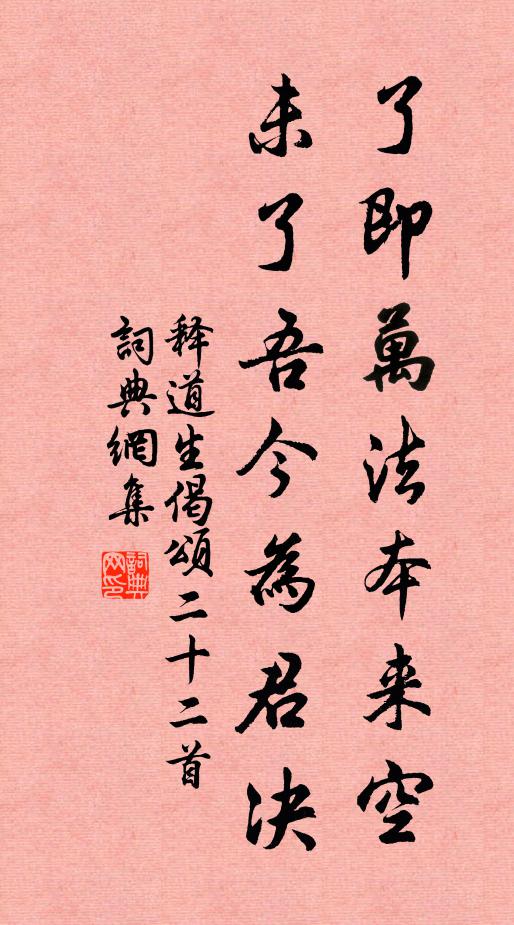 了即萬法本来空
未了吾今為君決
释道生偈頌二十二首
詞典網集
詞典网印